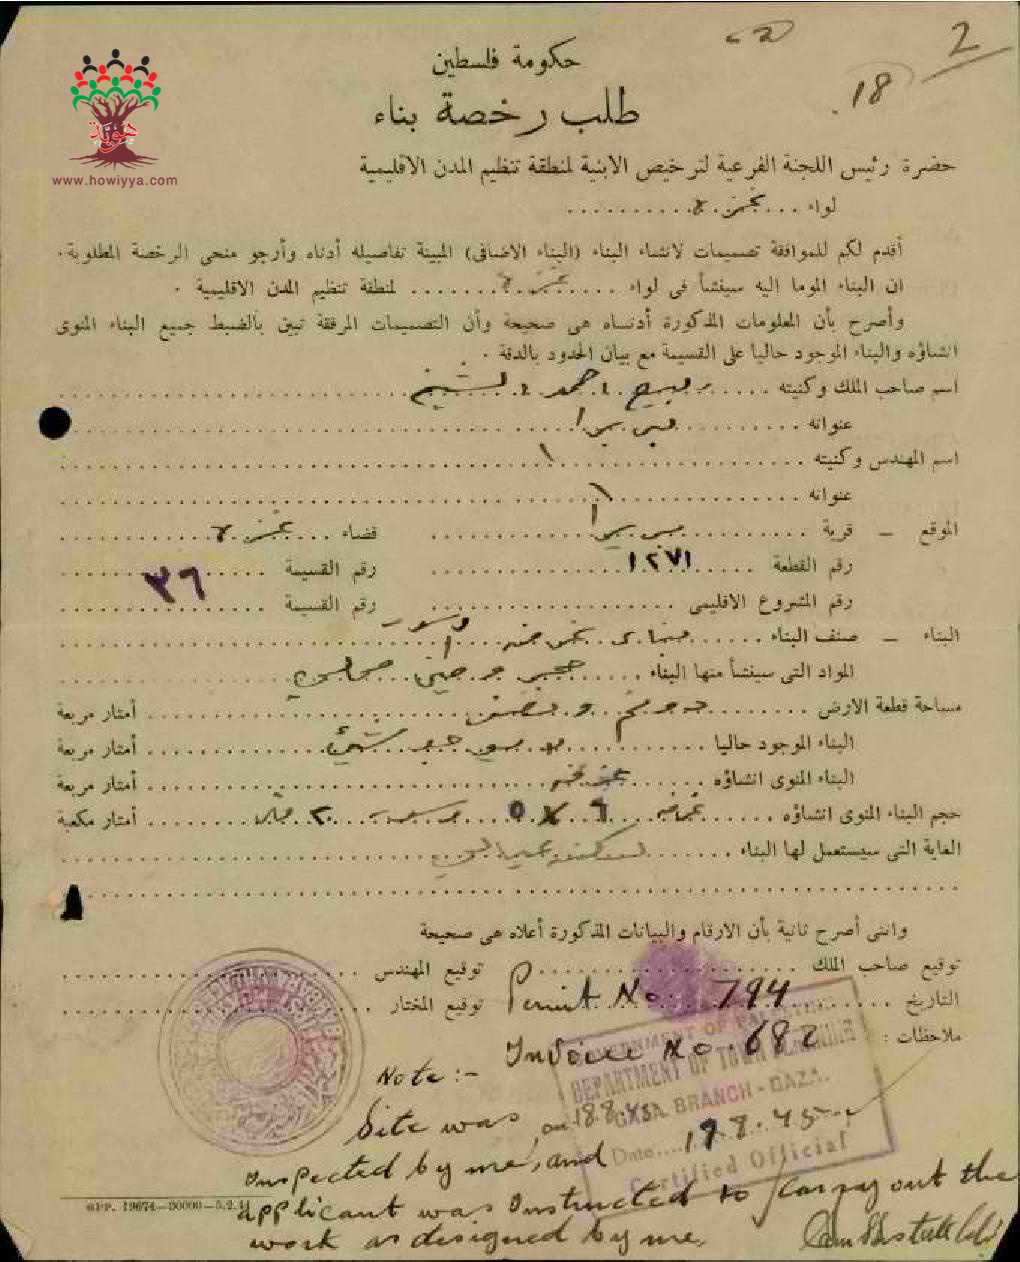 2
18
هوية
www.howiyya.com
حكومة فلسطين
طلب رخصة بناء
حضرة رئيس اللجنة الفرعية لترخيص الابنية لمنطقة تنظيم المدن الاقليمية
لواء ... غزة ...
أقدم لكم للموافقة تصميمات لانشاء البناء (البناء الاضافى) المبينة تفاصيله أدناه وأرجو منحى الرخصة المطلوبة .
ان البناء الموما اليه سينشأ فى لواء ... غزة ... لمنطقة تنظيم المدن الاقليمية .
وأصرح بأن المعلومات المذكورة أدناه هى صحيحة وأن التصميمات المرفقة تبين بالضبط جميع البناء المنوى
انشاؤه والبناء الموجود حاليا على القسيمة مع بيان الحدود بالدقة .
اسم صاحب الملك وكنيته ... ربيع احمد الشيخ
عنوانه ...
اسم المهندس وكنيته ...
عنوانه ...
الموقع - قرية ... قضاء ... غزة
رقم القطعة ... ١٢٧١ ... رقم القسيمة ... ٣٦
رقم المشروع الاقليمى ... رقم القسيمة ...
البناء - صنف البناء ...
المواد التى سينشأ منها البناء ... حجر و طين
مساحة قطعة الارض ... دونم و نصف ... أمتار مربعة
البناء الموجود حاليا ... أمتار مربعة
البناء المنوى انشاؤه ... غرفة ... أمتار مربعة
حجم البناء المنوى انشاؤه ... ٦ × ٥ ... أمتار مكعبة
الغاية التى سيستعمل لها البناء ...
وانى أصرح ثانية بأن الارقام والبيانات المذكورة أعلاه هى صحيحة
توقيع صاحب الملك ... توقيع المهندس ...
التاريخ ... توقيع المختار ...
Permit No. 794
ملاحظات :
Invoice No. 682
GOVERNMENT OF PALESTINE
DEPARTMENT OF TOWN PLANNING
GAZA BRANCH - GAZA.
Date.... 19.8.45
Certified Official
Note :-
Site was on 18.8.45
inspected by me, and
applicant was instructed to carry out the
work as designed by me,
GPP. 19674—30000—5.2.44